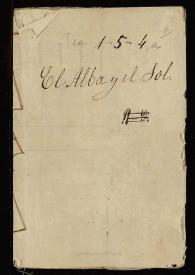 1-5-4
El Alba y el Sol.